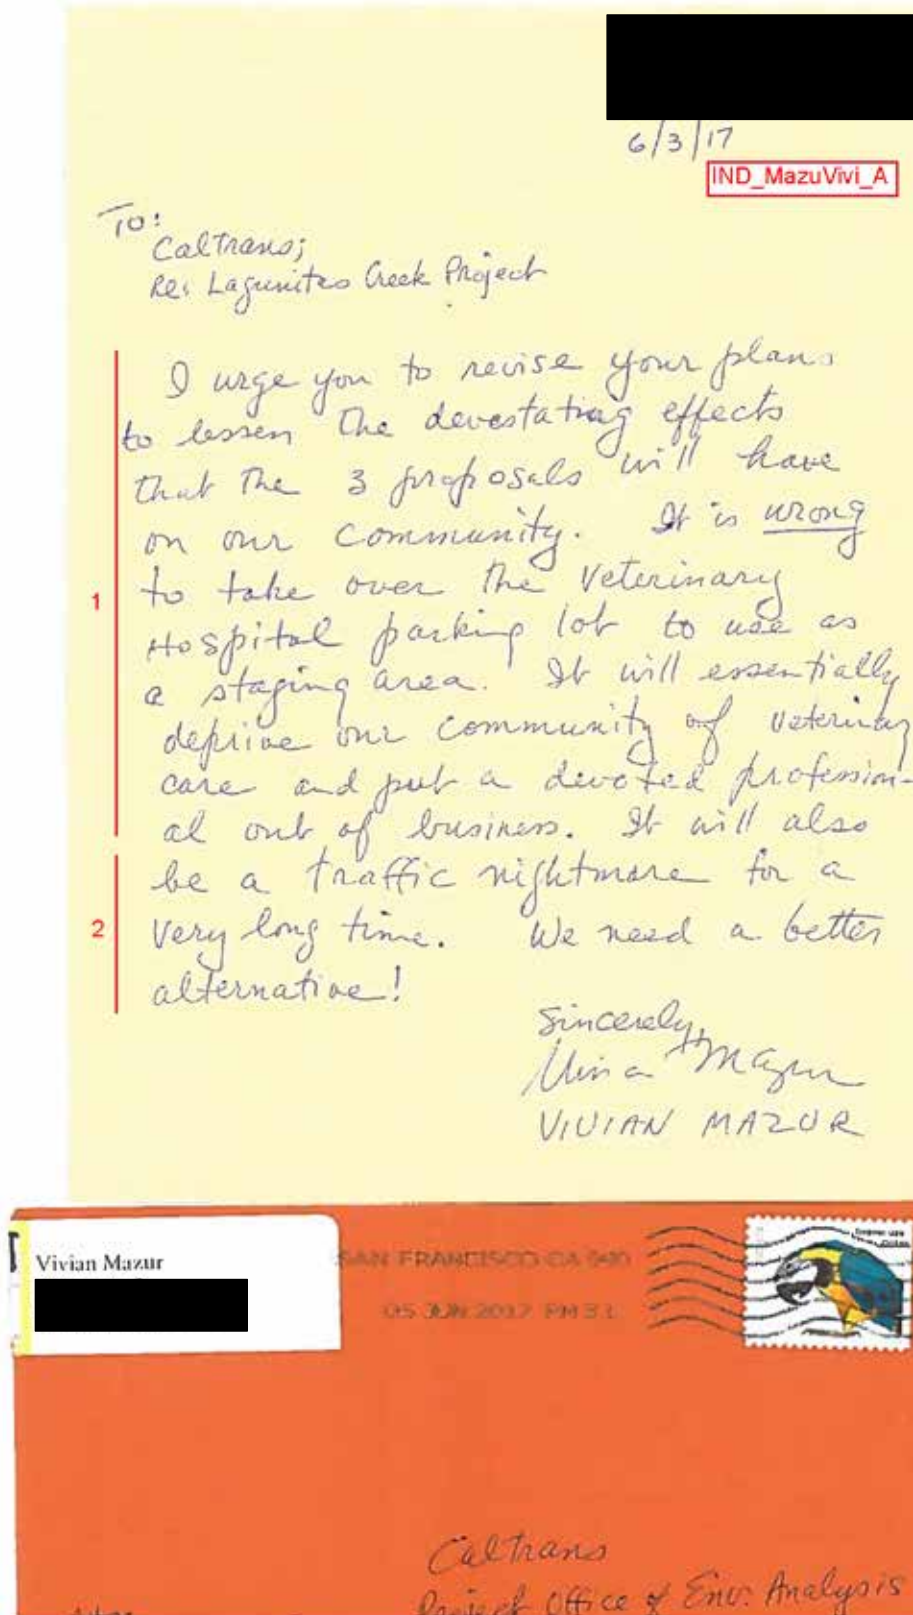 6/3/17
IND_MazuVivi_A
To:
Caltrans;
Re: Lagunitas Creek Project
I urge you to revise your plans
to lessen the devestating effects
that the 3 proposals will have
on our community. It is wrong
1
to take over the Veterinary
Hospital parking lot to use as
a staging area. It will essentially
deprive our community of veterinary
care and put a devoted profession-
al out of business. It will also
be a traffic nightmare for a
2
very long time. We need a better
alternative!
Sincerely,
Vivian Mazur
VIVIAN MAZUR
Vivian Mazur
SAN FRANCISCO CA 940
05 JUN 2017 PM 3 L
Caltrans
Project Office of Env. Analysis